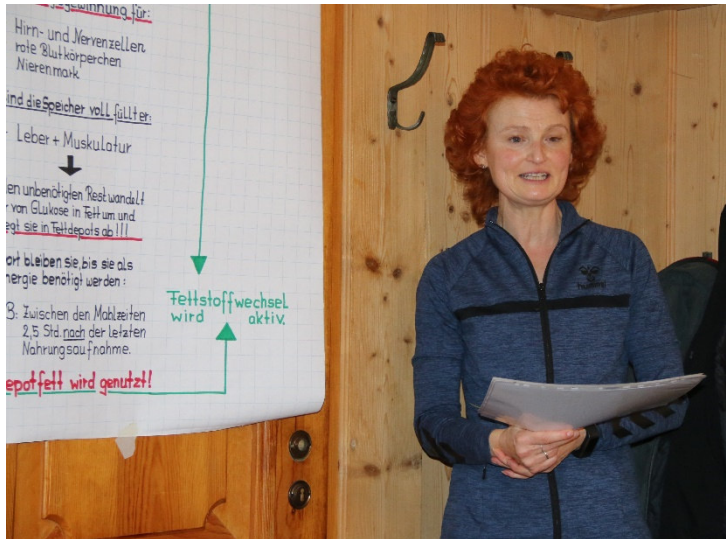 gewinnung für:
Hirn- und Nervenzellen
rote Blutkörperchen
Nierenmark
ind die Speicher voll füllt er:
Leber + Muskulatur
en unbenötigten Rest wandelt
r von Glukose in Fett um und
egt sie in Fettdepots ab!!!
ort bleiben sie, bis sie als
nergie benötigt werden:
B: Zwischen den Mahlzeiten
2,5 Std. nach der letzten
Nahrungsaufnahme.
epotfett wird genutzt!
Fettstoffwechsel
wird aktiv.
hummel